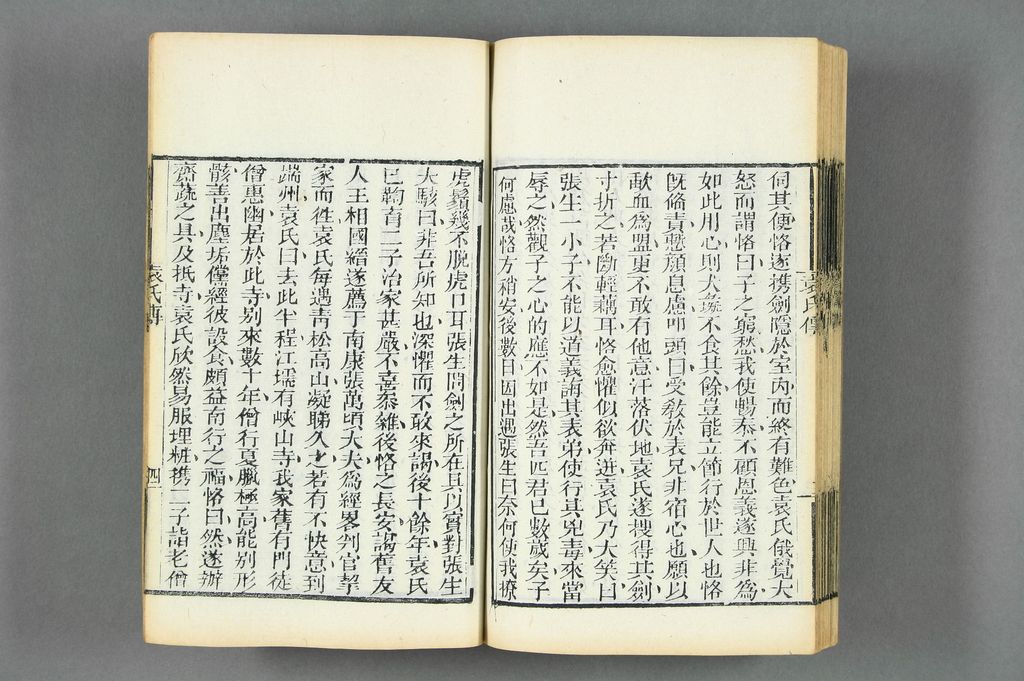 伺其便恪遂携劍隱於室内而終有難色袁氏俄覺大
怒而謂恪曰子之窮愁我使暢泰不顧恩義遂興非為
如此用心則犬彘不食其餘豈能立節行於世人也恪
既倄責慙顔息慮叩頭曰受教於表兄非宿心也願以
歃血為盟更不敢有他意汗落伏地袁氏遂搜得其劍
寸折之若斷輕藕耳恪愈懼似欲奔迸袁氏乃大笑曰
張生一小子不能以道義誨其表弟使行其兇毒來當
辱之然觀子之心的應不如是然吾匹君已數歲矣子
何慮哉恪方稍安後數日因出遇張生曰奈何使我撩
袁氏傳
虎鬚幾不脫虎口耳張生問劍之所在具以實對張生
大駭曰非吾所知也深懼而不敢來謁後十餘年袁氏
已鞠育二子治家甚嚴不喜叅雜後恪之長安謁舊友
人王相國縉遂薦于南康張萬頃大夫為經畧判官挈
家而徃袁氏每遇青松高山凝睇久之若有不快意到
端州袁氏曰去此半程江壖有峽山寺我家舊有門徒
僧惠幽居於此寺别來數十年僧行夏臘極高能别形
骸善出塵垢儻經彼設食頗益南行之福恪曰然遂辦
齋蔬之具及抵寺袁氏欣然易服理粧携二子詣老僧
袁氏傳
四